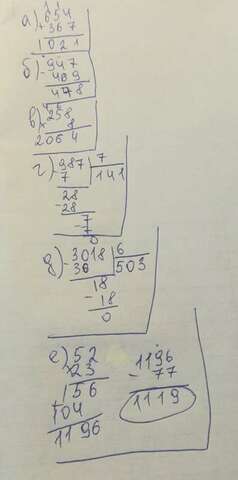 а) 654
+ 367
1021
б) 947
- 469
478
в) 258
× 8
2064
г) 987 | 7
- 7 | 141
28
- 28
7
- 7
0
д) 3018 | 6
- 30 | 503
18
- 18
0
е) 52
× 23
156
104
1196
1196
- 77
1119